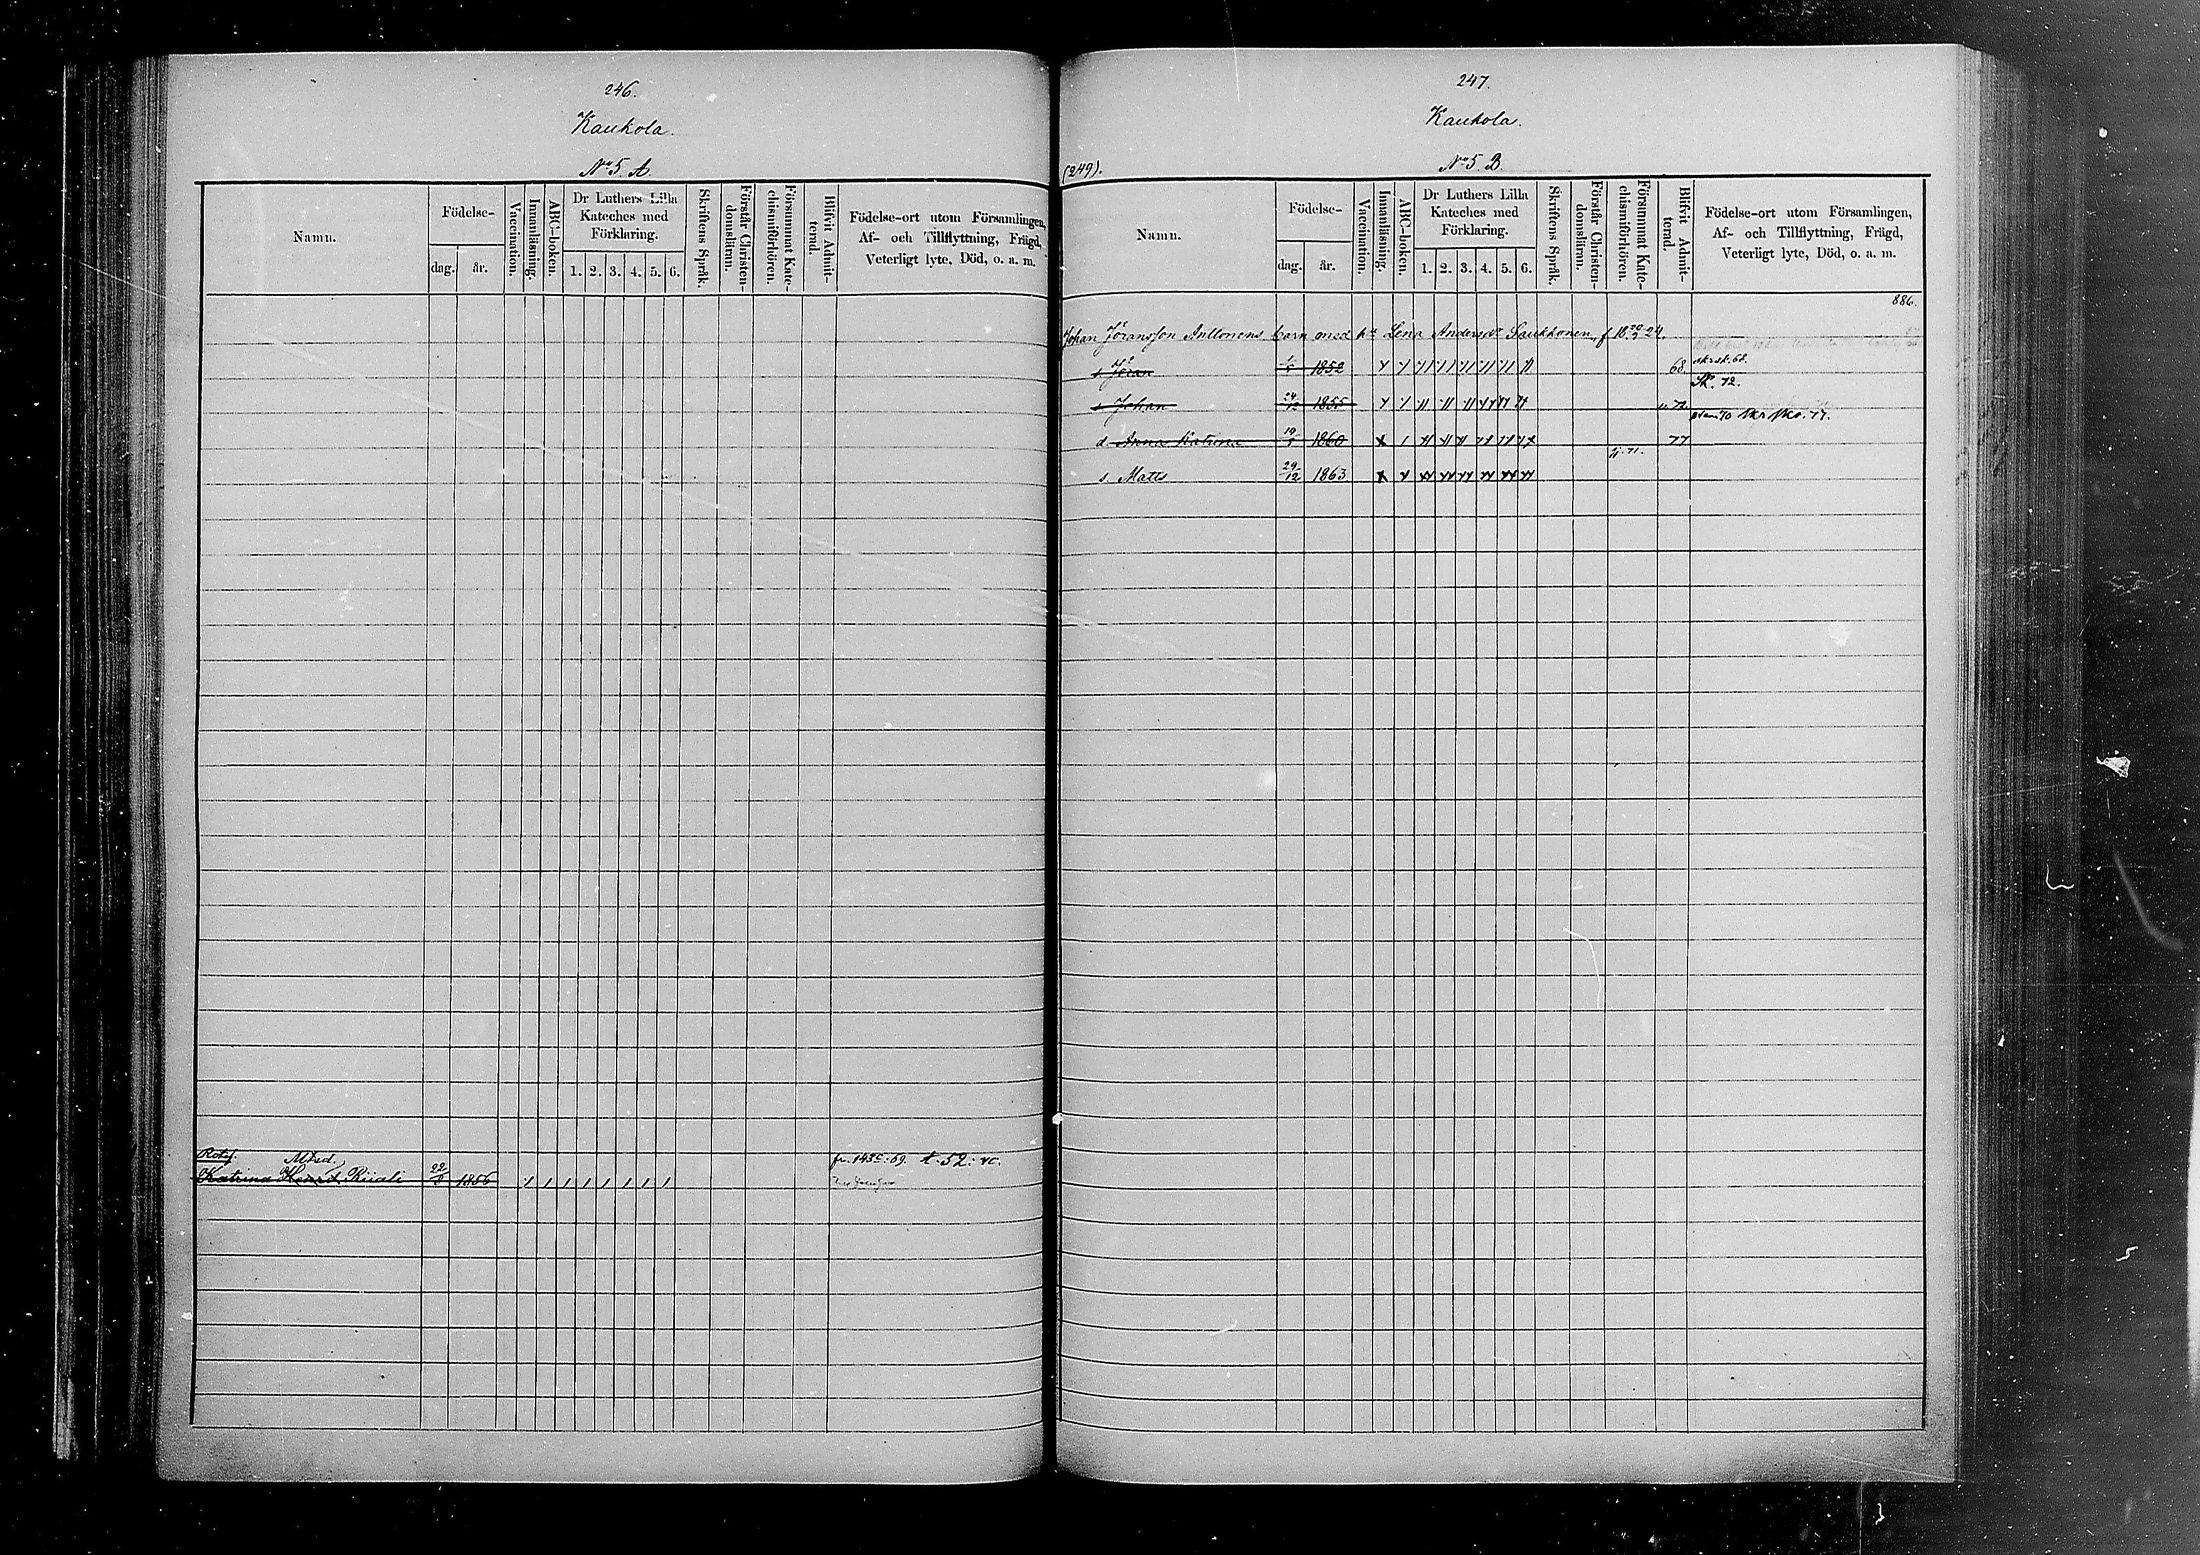 246.
Kaukola.
No 5. A.
Namn.
Födelse-
dag. år.
Vaccination.
Innanläsning.
ABC-boken.
Dr Luthers Lilla Kateches med Förklaring.
1. 2. 3. 4. 5. 6.
Skriftens Språk.
Förstår Christendomsläran.
Försummat Katechismiförhören.
Blifvit Admitterad.
Födelse-ort utom Församlingen,
Af- och Tillflyttning, Frägd,
Veterligt lyte, Död, o. a. m.
Mtsd.
fr. 143c: 69. t. 52:
Katrina Henrsd. Riiali 22/8 1856
247.
Kaukola.
(249).
No 5 B.
Namn.
Födelse-
dag. år.
Vaccination.
Innanläsning.
ABC-boken.
Dr Luthers Lilla Kateches med Förklaring.
1. 2. 3. 4. 5. 6.
Skriftens Språk.
Förstår Christendomsläran.
Försummat Katechismiförhören.
Blifvit Admitterad.
Födelse-ort utom Församlingen,
Af- och Tillflyttning, Frägd,
Veterligt lyte, Död, o. a. m.
886.
Johan Jöransson Anttonens barn med h. Lena Andersdr Saukkonen, f. 18 20/3 24.
s. Jöran 1852 68.
s. Johan 24/12 1855 72
d. Anna Katrina 19/5 1860 77
s. Matts 29/12 1863